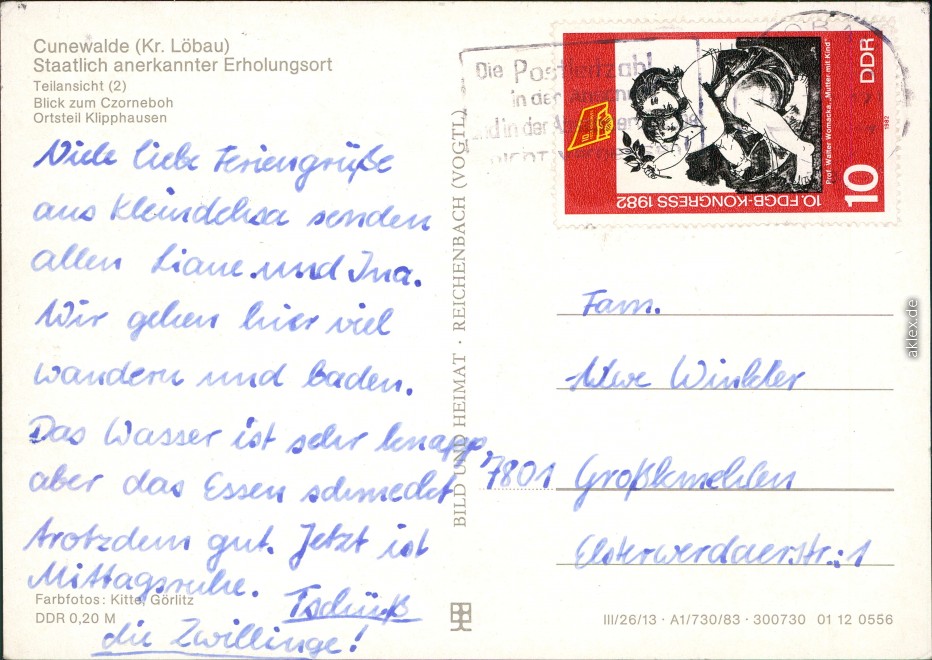 Cunewalde (Kr. Löbau)
Staatlich anerkannter Erholungsort
Teilansicht (2)
Blick zum Czorneboh
Ortsteil Klipphausen
Viele liebe Feriengrüße
aus Kleindehsa senden
allen Liane und Ina.
Wir gehen hier viel
wandern und baden.
Das Wasser ist sehr knapp,
aber das Essen schmeckt
trotzdem gut. Jetzt ist
Mittagsruhe. Tschüß
die Zwillinge!
Farbfotos: Kitte, Görlitz
DDR 0,20 M
BILD UND HEIMAT · REICHENBACH (VOGTL)
Die Postleitzahl
in der
und in der
10. FDGB-KONGRESS 1982
Prof. Walter Womacka „Mutter mit Kind"
DDR
10
1982
Fam.
Uwe Winkler
7801 Großkmehlen
Elsterwerdaerstr.:1
III/26/13 · A1/730/83 · 300730 01 12 0556
aklex.de